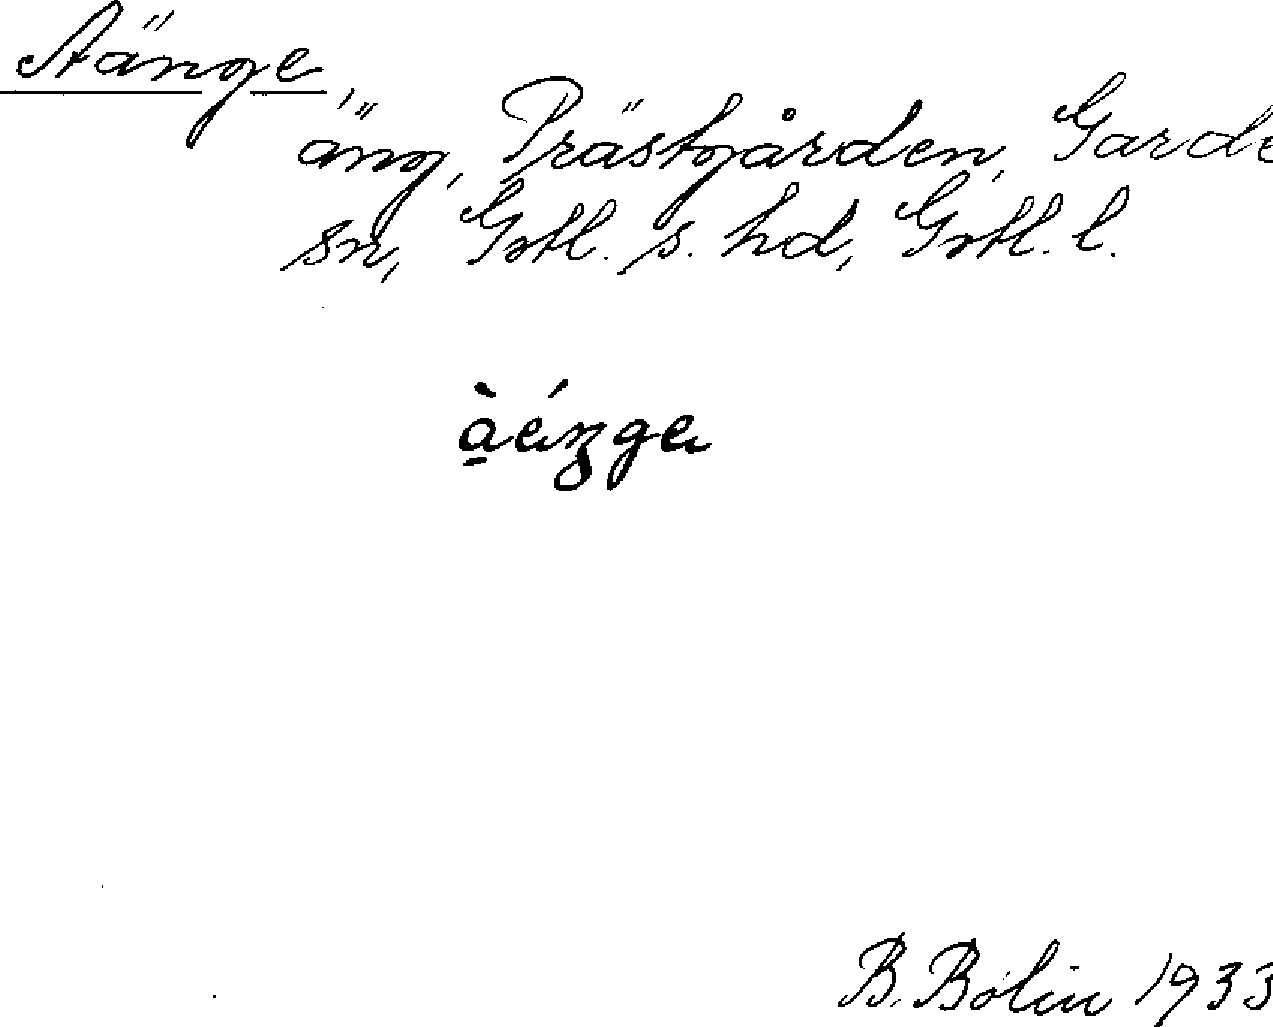 Aänge,
äng, Prästgården, Garde
sn, Gtl. s. hd, Gtl. l.
à̱énge
B. Bolin 1933